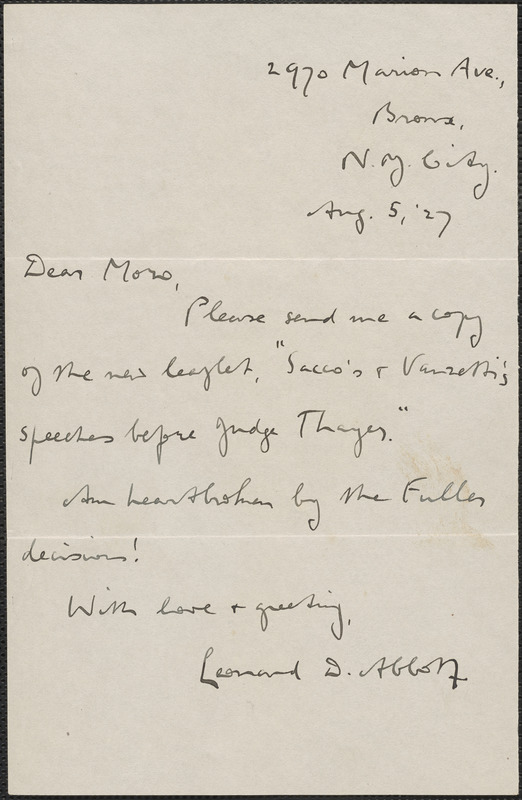 2970 Marion Ave.,
Bronx,
N.Y. City.
Aug. 5, '27
Dear Moro,
Please send me a copy
of the new leaflet, "Sacco's + Vanzetti's
speeches before Judge Thayer."
Am heartbroken by the Fuller
decision!
With love + greeting,
Leonard D. Abbott